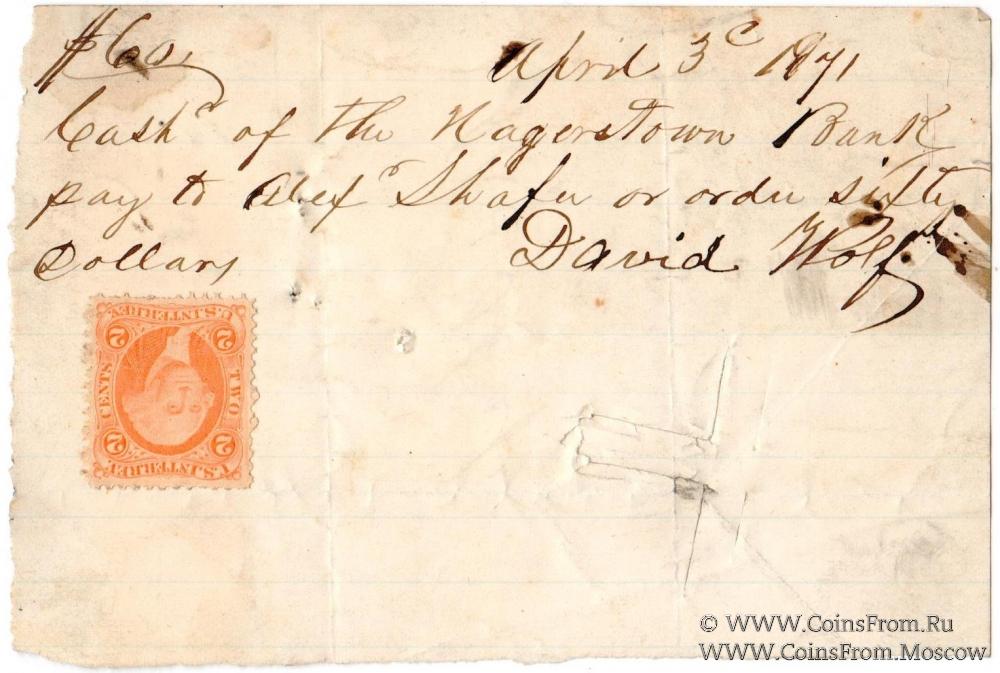 $60, April 3ᵈ 1871
Cashʳ of the Hagerstown Bank
pay to Alexʳ Shafer or order sixty
Dollars David Wolf
U.S. INTER. REV.
2 2
CENTS TWO
2 2
U.S. INTER. REV.
© WWW.CoinsFrom.Ru
WWW.CoinsFrom.Moscow